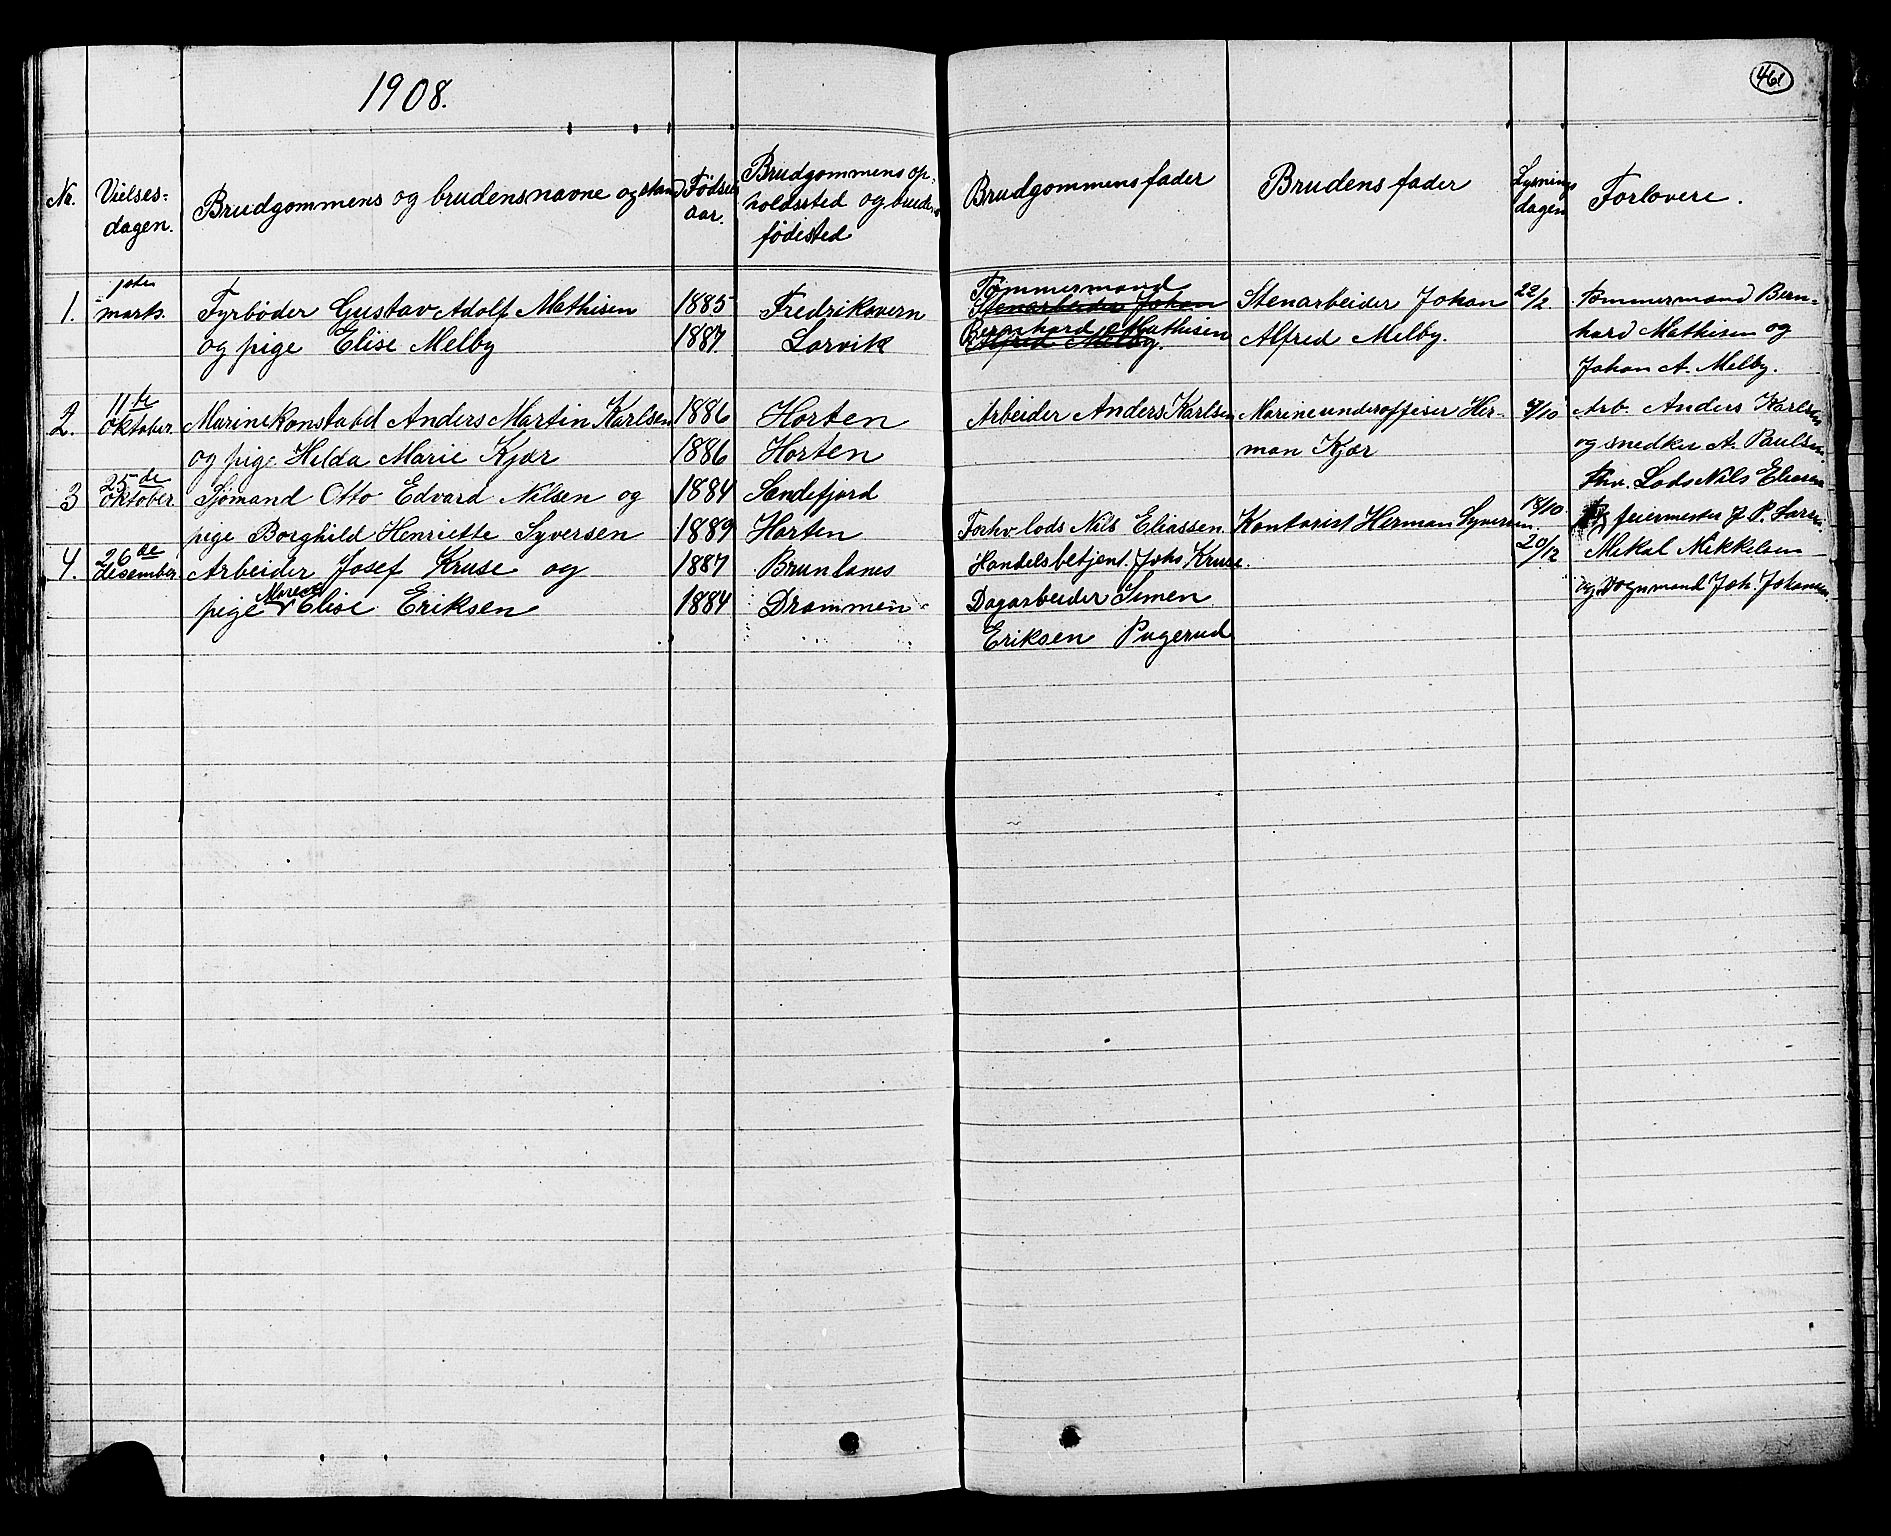 1908.
461
Nr.
Vielses-
dagen.
Brudgommens og brudens navne og stand
Fødsels
aar.
Brudgommens op-
holdssted og brudens
fødested
Brudgommens fader
Brudens fader
Lysnings
dagen
Forlovere.
1.
1ste
marts.
Fyrbøder Gustav Adolf Mathisen
og pige Elise Melby
1885
1887.
Fredriksvern
Larvik
Tømmermand
Stenarbeider Johan
Bernhard Mathisen
Alfred Melby.
Stenarbeider Johan
Alfred Melby.
22/2
Tømmermand Bern-
hard Mathisen og
Johan A. Melby.
2.
11te
Oktober.
Marinekonstabel Anders Martin Karlsen
og pige Hilda Marie Kjær
1886
1886
Horten
Horten
Arbeider Anders Karlsen
Marineunderoffiser Her-
man Kjær
Arb. Anders Karlsen
og snedker A. Paulsen.
3
25de
Oktober.
Sjømand Otto Edvard Nilsen og
pige Borghild Henriette Syversen
1884
1889
Sandefjord
Horten
Forhv. lods Nils Eliassen.
Kontorist Herman Syversen.
18/10
Fhv. Lods Nils Eliassen
feiermester J. P. Larsen
4.
26de
desember
Arbeider Josef Kruse og
pige Marece Elise Eriksen
1887
1884
Brunlanes
Drammen
Handelsbetjent Johs Kruse.
Dagarbeider Simen
Eriksen Pugerud
20/12
Mikal Mikkelsen
og Vognmand Joh. Johansen.